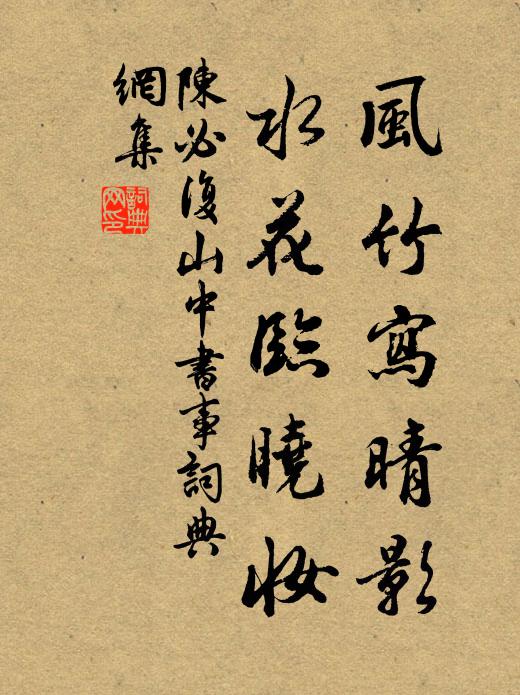 風竹寫晴影
水花臨曉妝
陳必復山中書事詞典
網集
詞典
网印